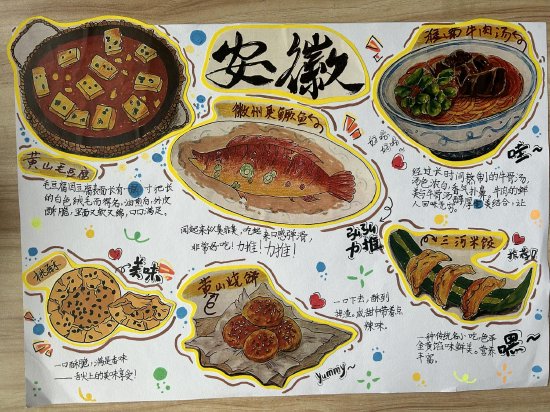 安徽
淮南牛肉汤
徽州臭鳜鱼
黄山毛豆腐
毛豆腐因豆腐表面长有一寸把长
的白色绒毛而得名。油煎白,外皮
酥脆,里面又软又嫩,口口满足。
闻起来似臭非臭,吃起来口感弹滑,
非常好吃!力推!力推!
力推
哇~
经过长时间熬制的牛骨汤,
汤色浓白,香气扑鼻,牛肉的鲜
美与牛骨汤
醇厚
美结合,让
人回味无穷。
三河米饺
推荐
一种传统名小吃,色泽
金黄馅味鲜美。营养
丰富。
嘿~
美味
一口酥脆,满是香味
——舌尖上的美味享受!
黄山烧饼
一口下去,酥到
掉渣。咸甜中带着点
辣味。
yummy~